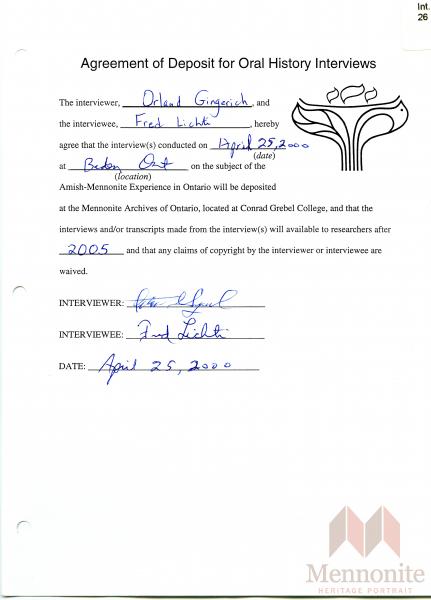 Int.
26
Agreement of Deposit for Oral History Interviews
The interviewer, Orland Gingerich, and
the interviewee, Fred Lichti, hereby
agree that the interview(s) conducted on April 25, 2000
(date)
at Ont on the subject of the
(location)
Amish-Mennonite Experience in Ontario will be deposited
at the Mennonite Archives of Ontario, located at Conrad Grebel College, and that the
interviews and/or transcripts made from the interview(s) will available to researchers after
2005 and that any claims of copyright by the interviewer or interviewee are
waived.
INTERVIEWER:
INTERVIEWEE: Fred Lichti
DATE: April 25, 2000
Mennonite
HERITAGE PORTRAIT